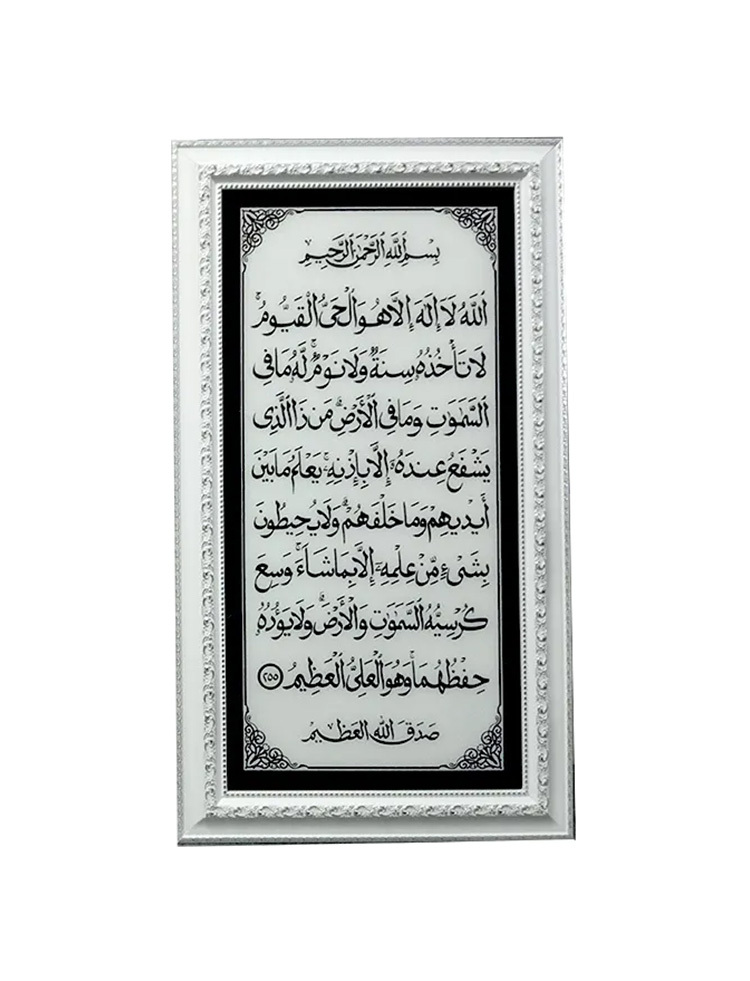 بِسْمِ ٱللَّهِ ٱلرَّحْمَٰنِ ٱلرَّحِيمِ
ٱللَّهُ لَآ إِلَٰهَ إِلَّا هُوَ ٱلْحَىُّ ٱلْقَيُّومُ ۚ
لَا تَأْخُذُهُۥ سِنَةٌ وَلَا نَوْمٌ ۚ لَّهُۥ مَا فِى
ٱلسَّمَٰوَٰتِ وَمَا فِى ٱلْأَرْضِ ۗ مَن ذَا ٱلَّذِى
يَشْفَعُ عِندَهُۥٓ إِلَّا بِإِذْنِهِۦ ۚ يَعْلَمُ مَا بَيْنَ
أَيْدِيهِمْ وَمَا خَلْفَهُمْ ۖ وَلَا يُحِيطُونَ
بِشَىْءٍ مِّنْ عِلْمِهِۦٓ إِلَّا بِمَا شَآءَ ۚ وَسِعَ
كُرْسِيُّهُ ٱلسَّمَٰوَٰتِ وَٱلْأَرْضَ ۖ وَلَا يَـُٔودُهُۥ
حِفْظُهُمَا ۚ وَهُوَ ٱلْعَلِىُّ ٱلْعَظِيمُ ٢٥٥
صَدَقَ اللهُ العَظِيمُ